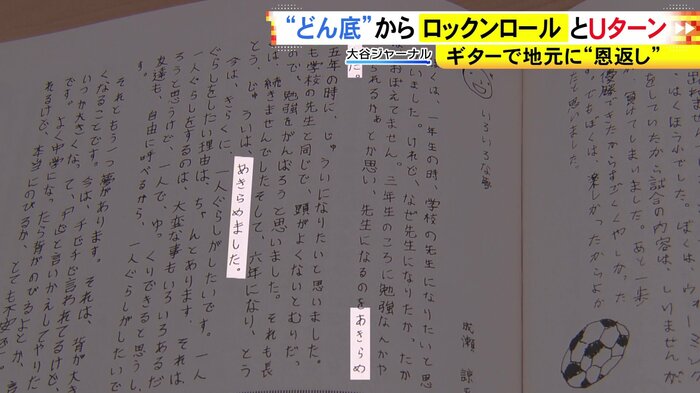 “どん底”からロックンロールとUターン
大谷ジャーナル
ギターで地元に“恩返し”
をしていたから試合の内容は、しりませんが
負けてしまいました。あと一歩
優勝できたからすごくくやしかった
。でもぼくは、楽しかったからよか
たで思いました。
いろいろな夢
成瀬 諒
くは、一年生の時、学校の先生になりたいと思
いました。けれど、なぜ先生になりたかったか
おぼえてません。三年生のころに勉強なんかや
られるかぁとか思い、先生になるのをあきらめ
た。
五年の時に、じゅういになりたいと思いました。
も学校の先生と同じで、頭がよくないとむりだっ
ので、勉強をがんばろうと思いました。それも長
は、続きませんでしたそして、六年になり、とう
とう、じゅういは、あきらめました。
今は、きらくに一人ぐらしがしたいです。一人
ぐらしをしたい理由は、ちゃんとあります。それは、
一人ぐらしをするのは、大変な事もいろいろあるだ
ろうと思うけど、一人で、ゆっくりできると思うし、
友達も、自由に呼べるから、一人ぐらしがしたいで
それともう一つ夢があります。それは、背が大き
くなることです。今は、チビチビ言われてるけど、
いつか大きくなって、「チビ」と言いかえしてやりた
です。よく中学になったら背がのびるよとか、言
れるけど、本当にのびるか、とても不安です。